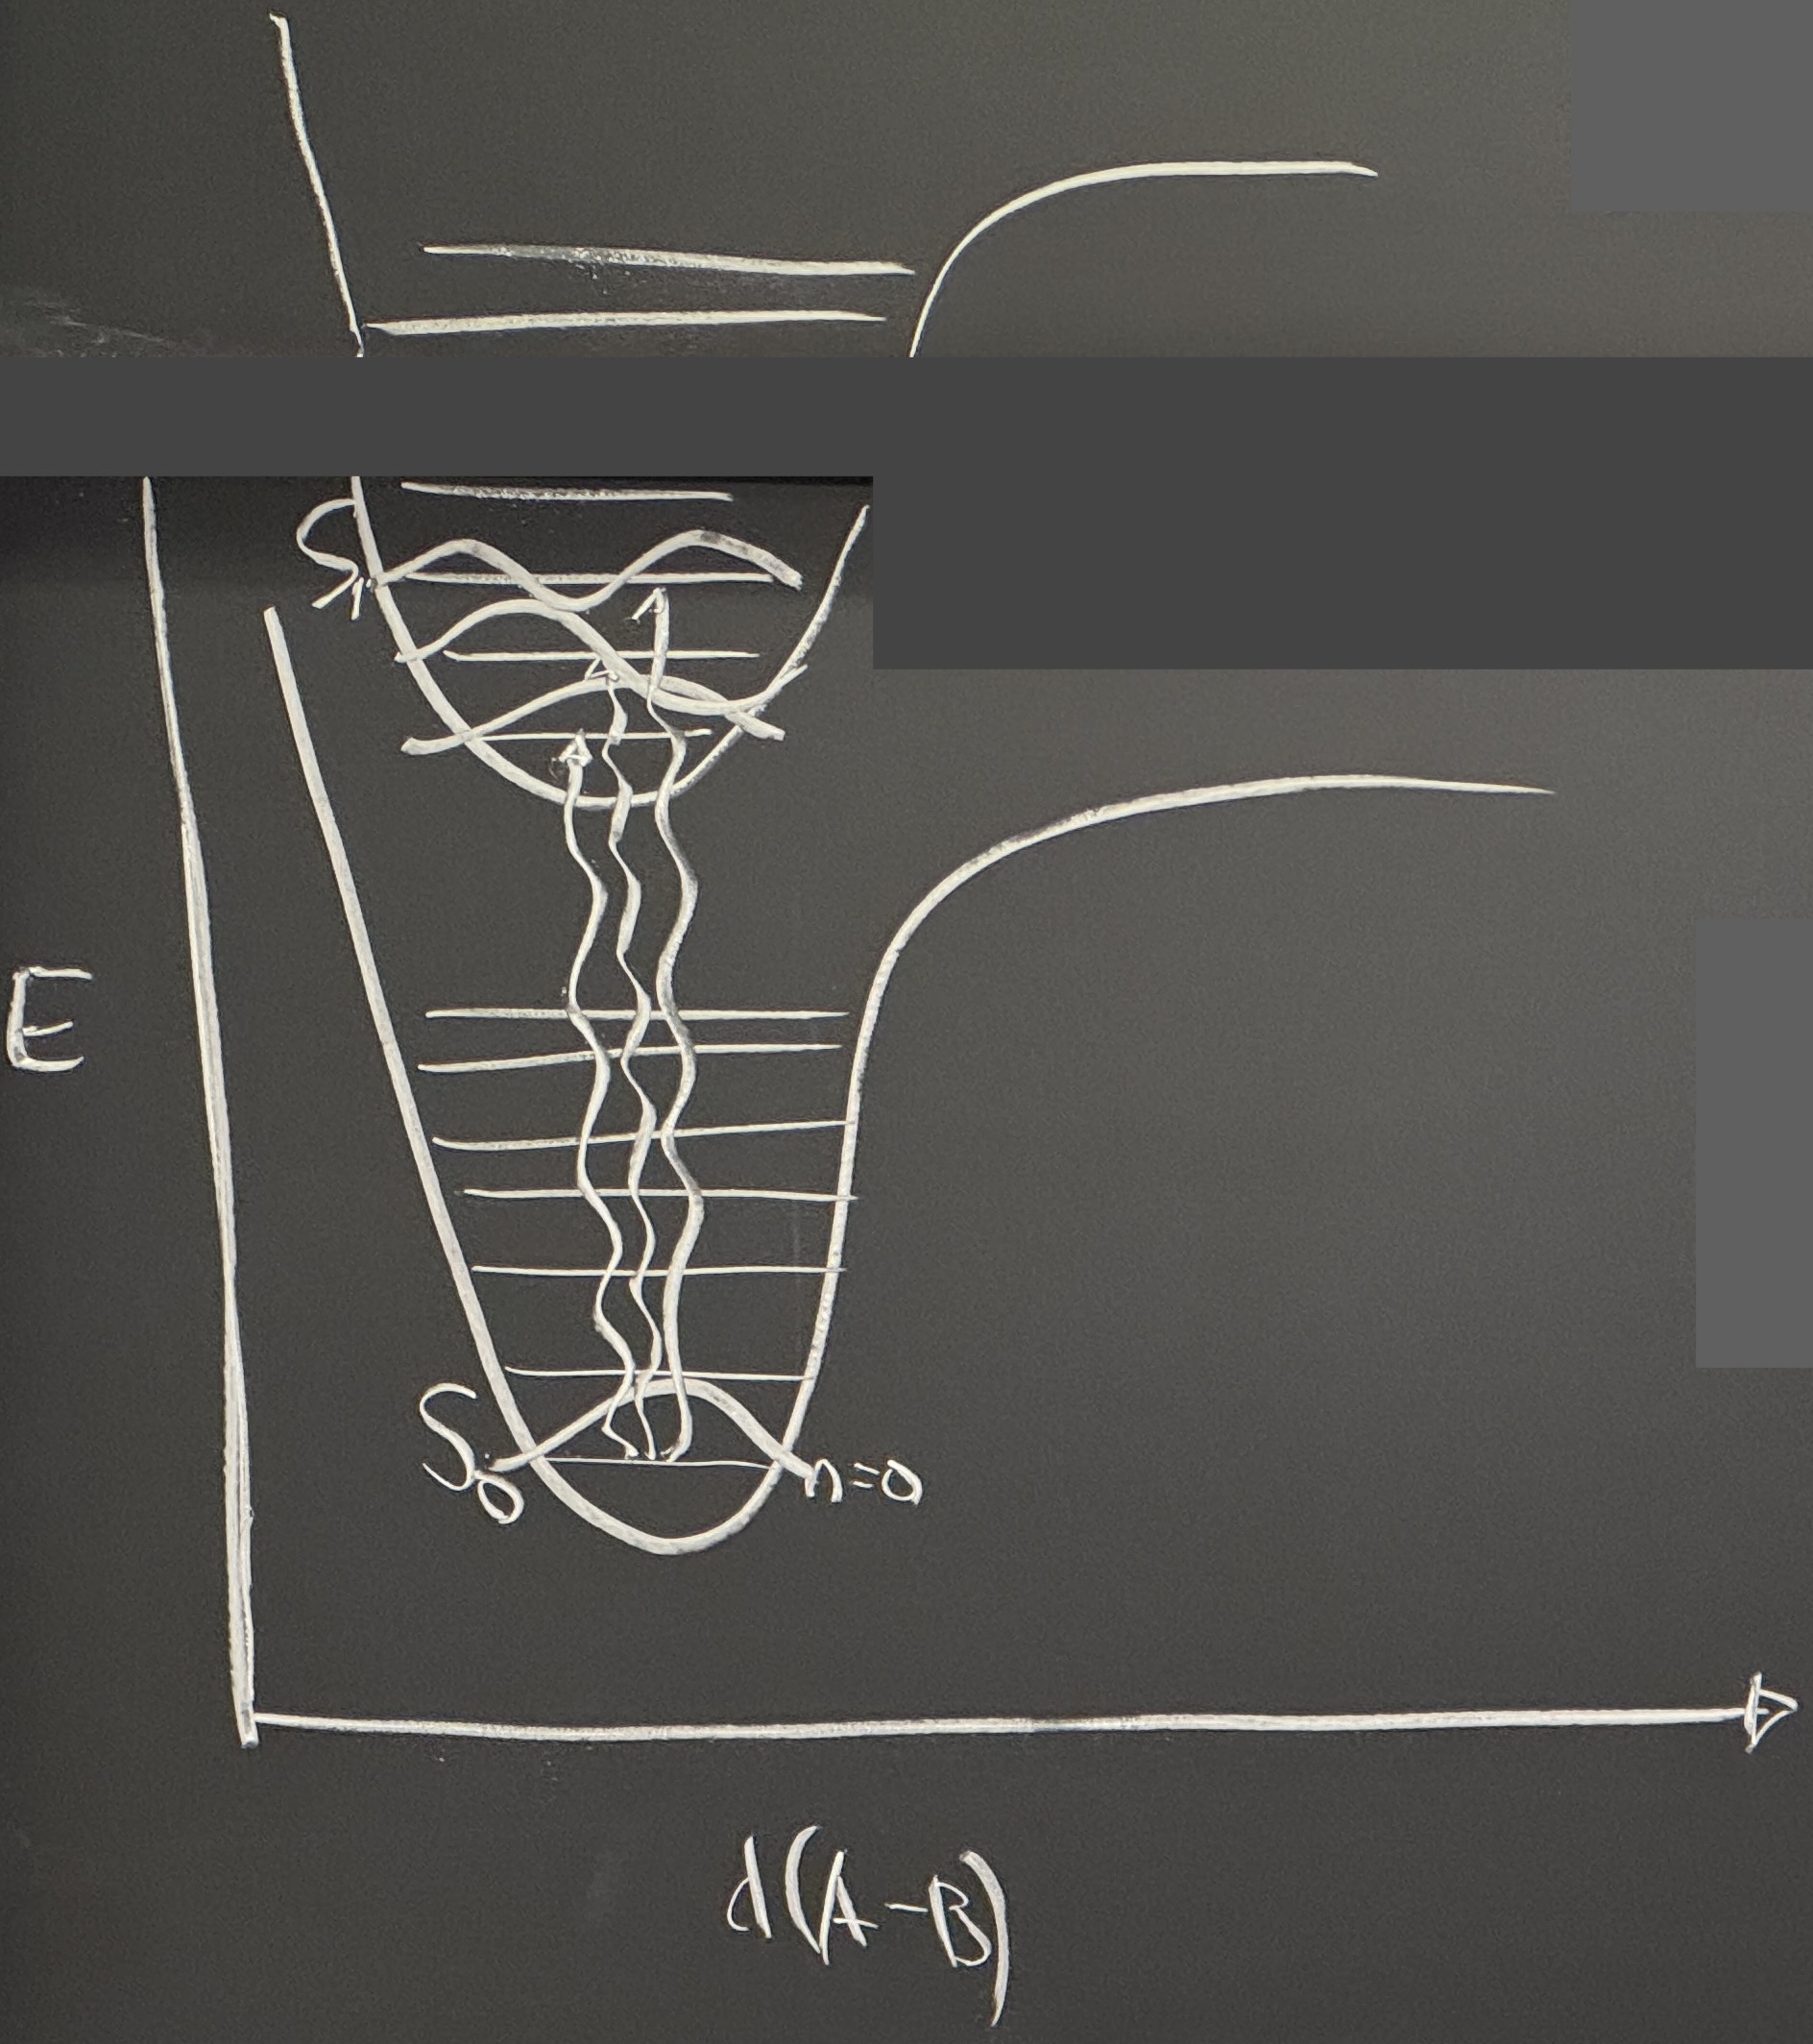 S₁
E
S₀ n=0
d(A-B)